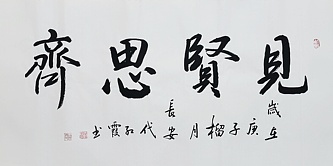 見賢思齊
歲在庚子榴月長安代红霞书